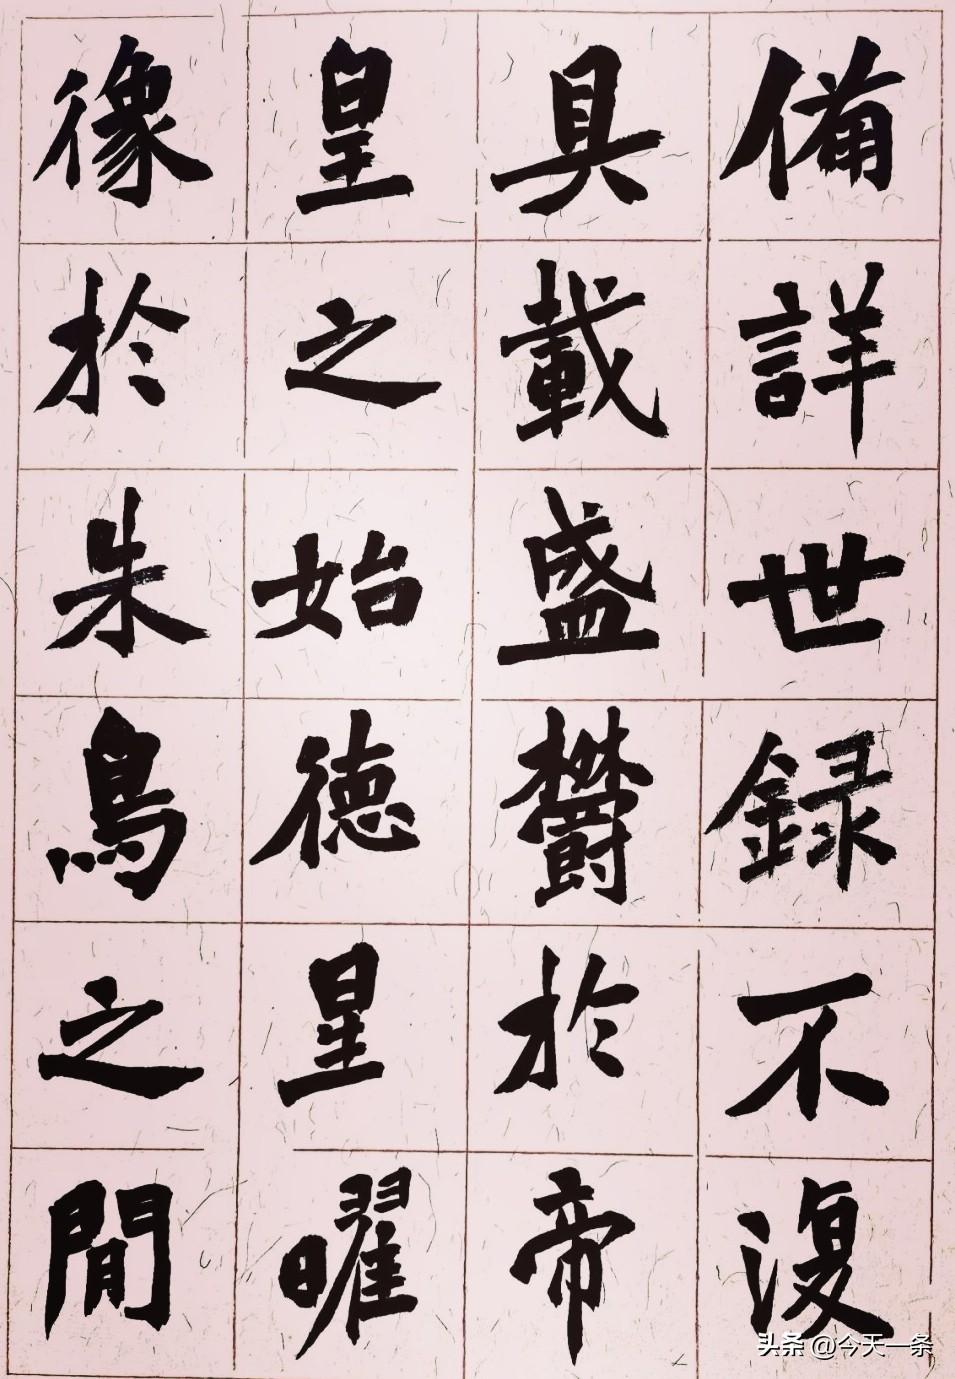 備詳世録不復
具載盛欝於帝
皇之始德星曜
像於朱鳥之閒
头条 @今天一条